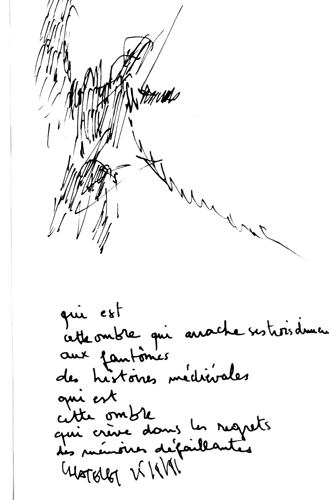 qui est
cette ombre qui arrache ses trois dimen
aux fantômes
des histoires médiévales
qui est
cette ombre
qui crève dans les regrets
des mémoires défaillantes
CHATELET